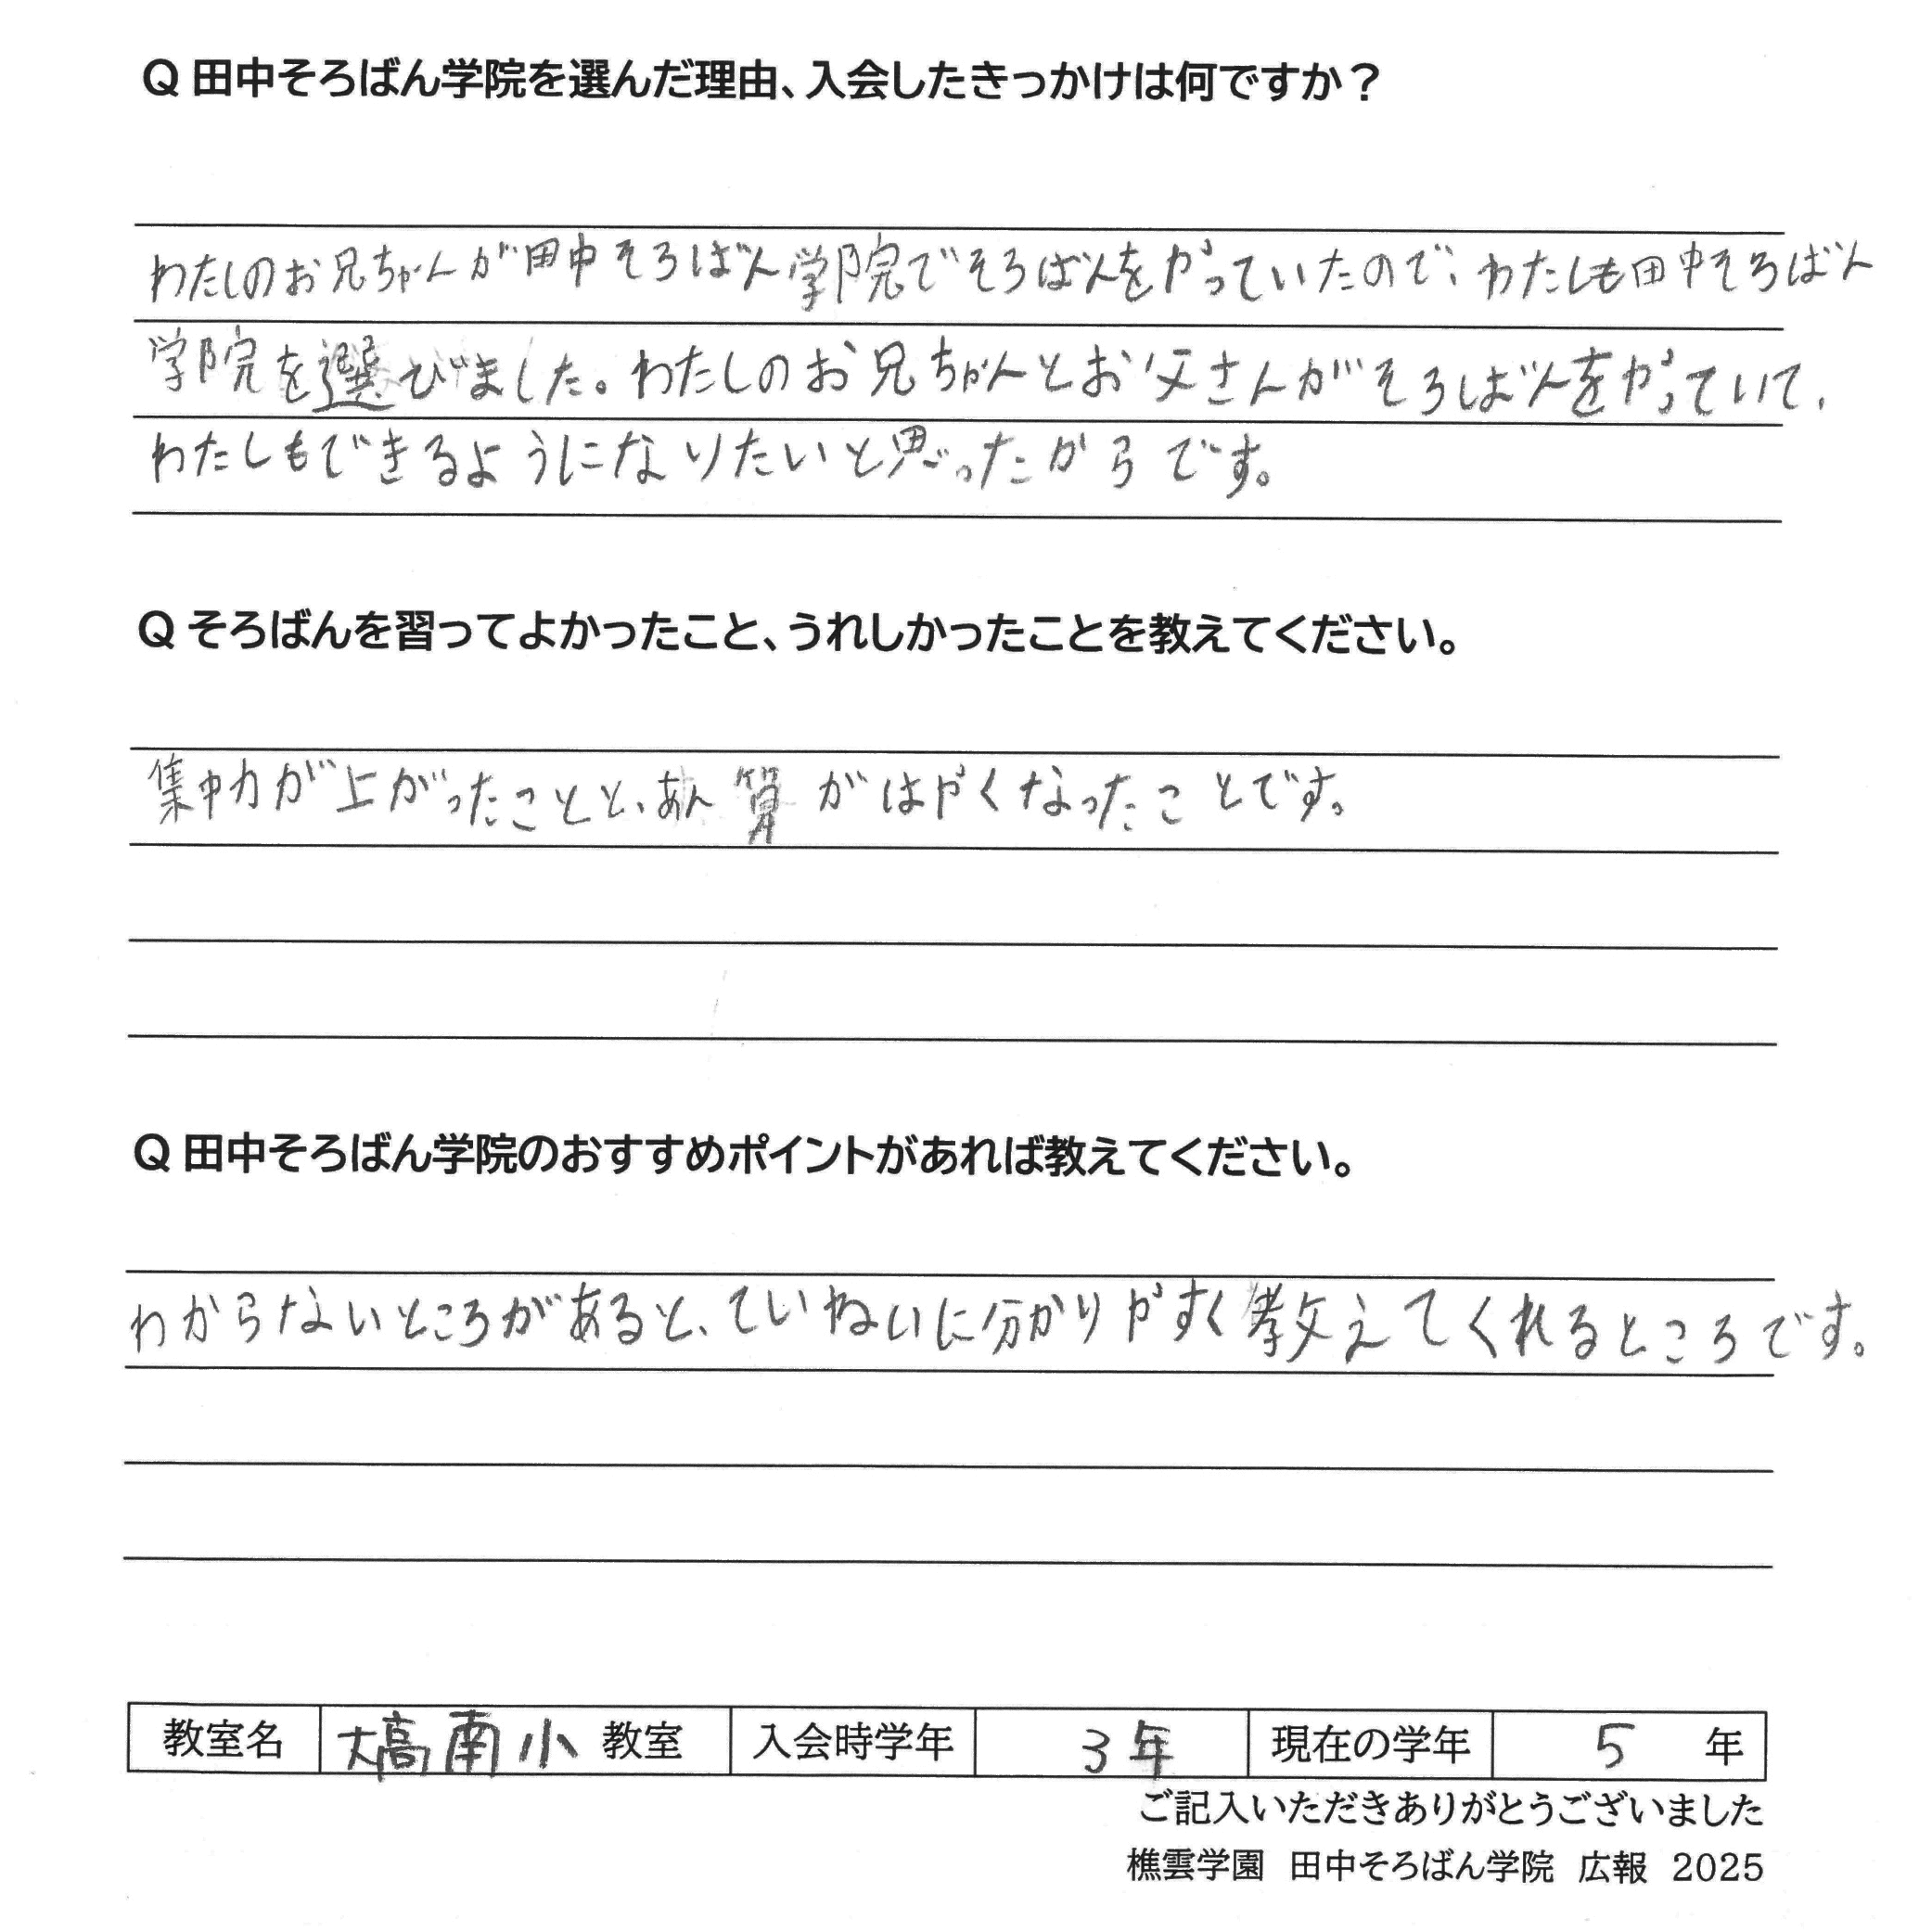 Q 田中そろばん学院を選んだ理由、入会したきっかけは何ですか？
わたしのお兄ちゃんが田中そろばん学院でそろばんをやっていたので、わたしも田中そろばん
学院を選びました。わたしのお兄ちゃんとお父さんがそろばんをやっていて、
わたしもできるようになりたいと思ったからです。
Q そろばんを習ってよかったこと、うれしかったことを教えてください。
集中力が上がったことと、あん算がはやくなったことです。
Q 田中そろばん学院のおすすめポイントがあれば教えてください。
わからないところがあると、ていねいに分かりやすく教えてくれるところです。
教室名 大高南小 教室 入会時学年 3年 現在の学年 5 年
ご記入いただきありがとうございました
樵雲学園 田中そろばん学院 広報 2025